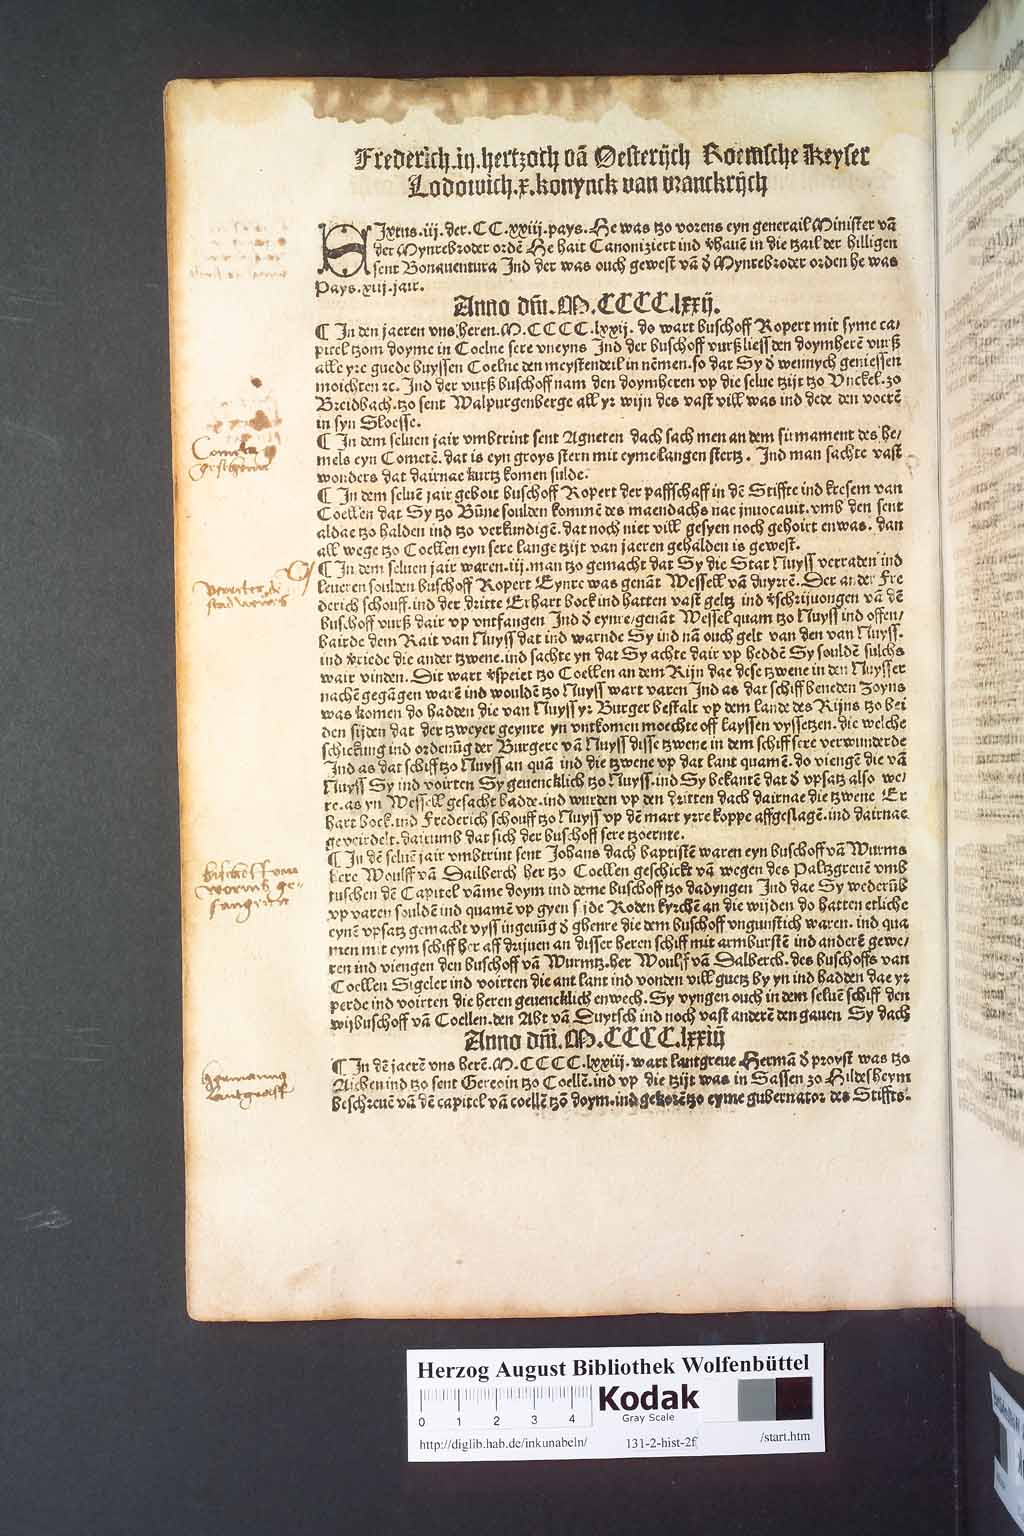 Frederich.iij.hertzoch vã Oesterijch Roemsche Keyser
Lodowich.x.konynck van vranckrijch
SIxtus.iij.der.CC.xxiij.pays.He was tzo vorens eyn generail Minister vã
der Mynrebroder ordẽ He hait Canoniziert ind v̓hauẽ in die tzail der hilligen
sent Bonauentura Ind der was ouch gewest vã d̓ Mynrebroder orden he was
Pays.xiij.jair.
Anno dñi.M.CCCC.lxxij.
¶ In den jaeren vns heren.M.CCCC.lxxij. do wart buschoff Ropert mit syme ca/
pittel tzom doyme in Coelne sere vneyns Ind der buschoff vurß liess den doymherẽ vurß
alle yre guede buyssen Coelne den meystendeil in nẽmen.so dat Sy d̓ wennych geniessen
moichten ꝛc. Ind der vurß buschoff nam den doymheren vp die selue tzijt tzo Vnckel.zo
Breidbach.tzo sent Walpurgenberge all yr wijn des vast vill was ind dede den voerẽ
in syn Sloesse.
¶ In dem seluen jair vmbtrint sent Agneten dach sach men an dem firmament des he/
mels eyn Cometẽ.dat is eyn groys stern mit eyme langen stertz. Ind man sachte vast
wonders dat dairnae kurtz komen sulde.
¶ In dem seluẽ jair geboit buschoff Ropert der paffschaff in dẽ Stiffte ind kresem van
Coellen dat Sy tzo Bũne soulden kommẽ des maendachs nae jnuocauit.vmb den sent
aldae tzo halden ind tzo verkundigẽ.dat noch niet vill gesyen noch gehoirt enwas. dan
all wege tzo Coellen eyn sere lange tzijt van jaeren gehalden is gewest.
¶ In dem seluen jair waren.iij.man tzo gemacht dat Sy die Stat Nuyss verraden ind
leueren soulden buschoff Ropert Eynre was genãt Wessell vã duyrẽ. Der ander Fre
derich schouff.ind der dritte Erhart bock ind hatten vast geltz ind v̓schrijuongen vã dẽ
buschoff vurß dair vp vntfangen Ind d̓ eynre/genãt Wessel quam tzo Nuyss ind offen/
bairde dem Rait van Nuyss dat ind warnde Sy ind nã ouch gelt van den van Nuyss.
ind v̓riede die ander tzwene.ind sachte yn dat Sy achte dair vp heddẽ Sy souldẽ sulchs
wair vinden. Dit wart v̓speiet tzo Coellen an dem Rijn dae dese tzwene in den Nuysser
nachẽ gegãgen warẽ ind wouldẽ tzo Nuyss wart varen Ind as dat schiff beneden Zoyns
was komen do hadden die van Nuyss yr Burger bestalt vp dem lande des Rijns tzo bei
den sijden dat der tzweyer geynre yn vntkomen moechte off layssen vyssetzen.die welche
schickung ind ordenũg der Burgere vã Nuyss disse tzwene in dem schiff sere verwunderde
Ind as dat schiff tzo Nuyss an quã ind die tzwene vp dat lant quamẽ.do viengẽ die vã
Nuyss Sy ind voirten Sy geuencklich tzo Nuyss.ind Sy bekantẽ dat d̓ vpsatz also we/
re.as yn Wessell gesacht hadde.ind wurden vp den dritten dach dairnae die tzwene Er
hart bock.ind Frederich schouff tzo Nuyss vp dẽ mart yrre koppe affgeslagẽ.ind dairnae
geveirdelt.dairumb dat sich der buschoff sere tzoernte.
¶ In dẽ seluẽ jair vmbtrint sent Johans dach baptistẽ waren eyn buschoff vã Wurms
here Woulff vã Dailberch her tzo Coellen geschickt vã wegen des Paltzgreuẽ vmb
tuschen dẽ Capitel vãme doym ind deme buschoff tzo dadyngen Ind dae Sy wederũb
vp varen souldẽ ind quamẽ vp gyen sijde Roden kyrchẽ an die wijden do hatten etliche
eynẽ vpsatz gemacht vyss ingeuũg d̓ ghenre die dem buschoff vngunstich waren. ind qua
men mit eym schiff her aff drijuen an disser heren schiff mit armburstẽ ind anderẽ gewe/
ren ind viengen den buschoff vã Wurmtz.her Woulff vã Dalberch.des buschoffs van
Coellen Sigeler ind voirten die ant lant ind vonden vill guetz by yn ind hadden dae yr
perde ind voirten die heren geuencklich enwech.Sy vyngen ouch in dem seluẽ schiff den
wijbuschoff vã Coellen.den Abt vã Duytsch ind noch vast anderẽ den gauen Sy dach
Anno dñi.M.CCCC.lxxiij
¶ In dẽ jaerẽ vns herẽ.M.CCCC.lxxiij.wart lantgreue Hermã d̓ provst was tzo
Aichen ind tzo sent Gereoin tzo Coellẽ.ind vp die tzijt was in Sassen zo Hildesheym
beschreuẽ vã dẽ capitel vã coellẽ tzõ doym.ind gekorẽ tzo eyme gubernator des Stiffts.
Cometa
gesehenn
Verreter d̓
stad Neuss
bischoff von
Wormbs ge-
fangenn
Hermannus
Lantgraff
Herzog August Bibliothek Wolfenbüttel
0 1 2 3 4
Kodak
Gray Scale
http://diglib.hab.de/inkunabeln/ 131-2-hist-2f /start.htm